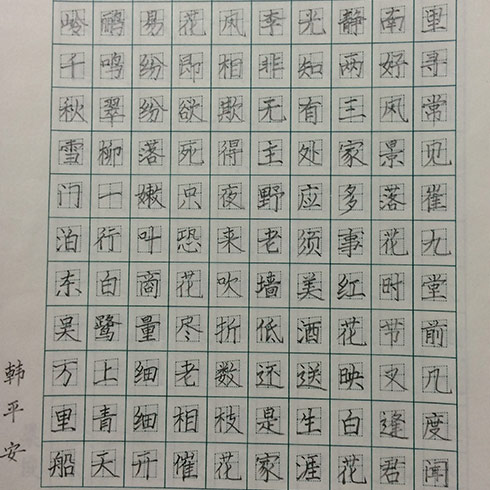 里寻常见崔九堂前几度闻
南好风景落花时节又逢君
静两三家多事红花映白花
光知有处应须美酒送生涯
李非无主野老墙低还是家
风相欺得夜来吹折数枝花
花即欲死只恐花尽老相催
易纷纷落嫩叶商量细细开
鹂鸣翠柳一行白鹭上青天
岭千秋雪门泊东吴万里船
韩平安